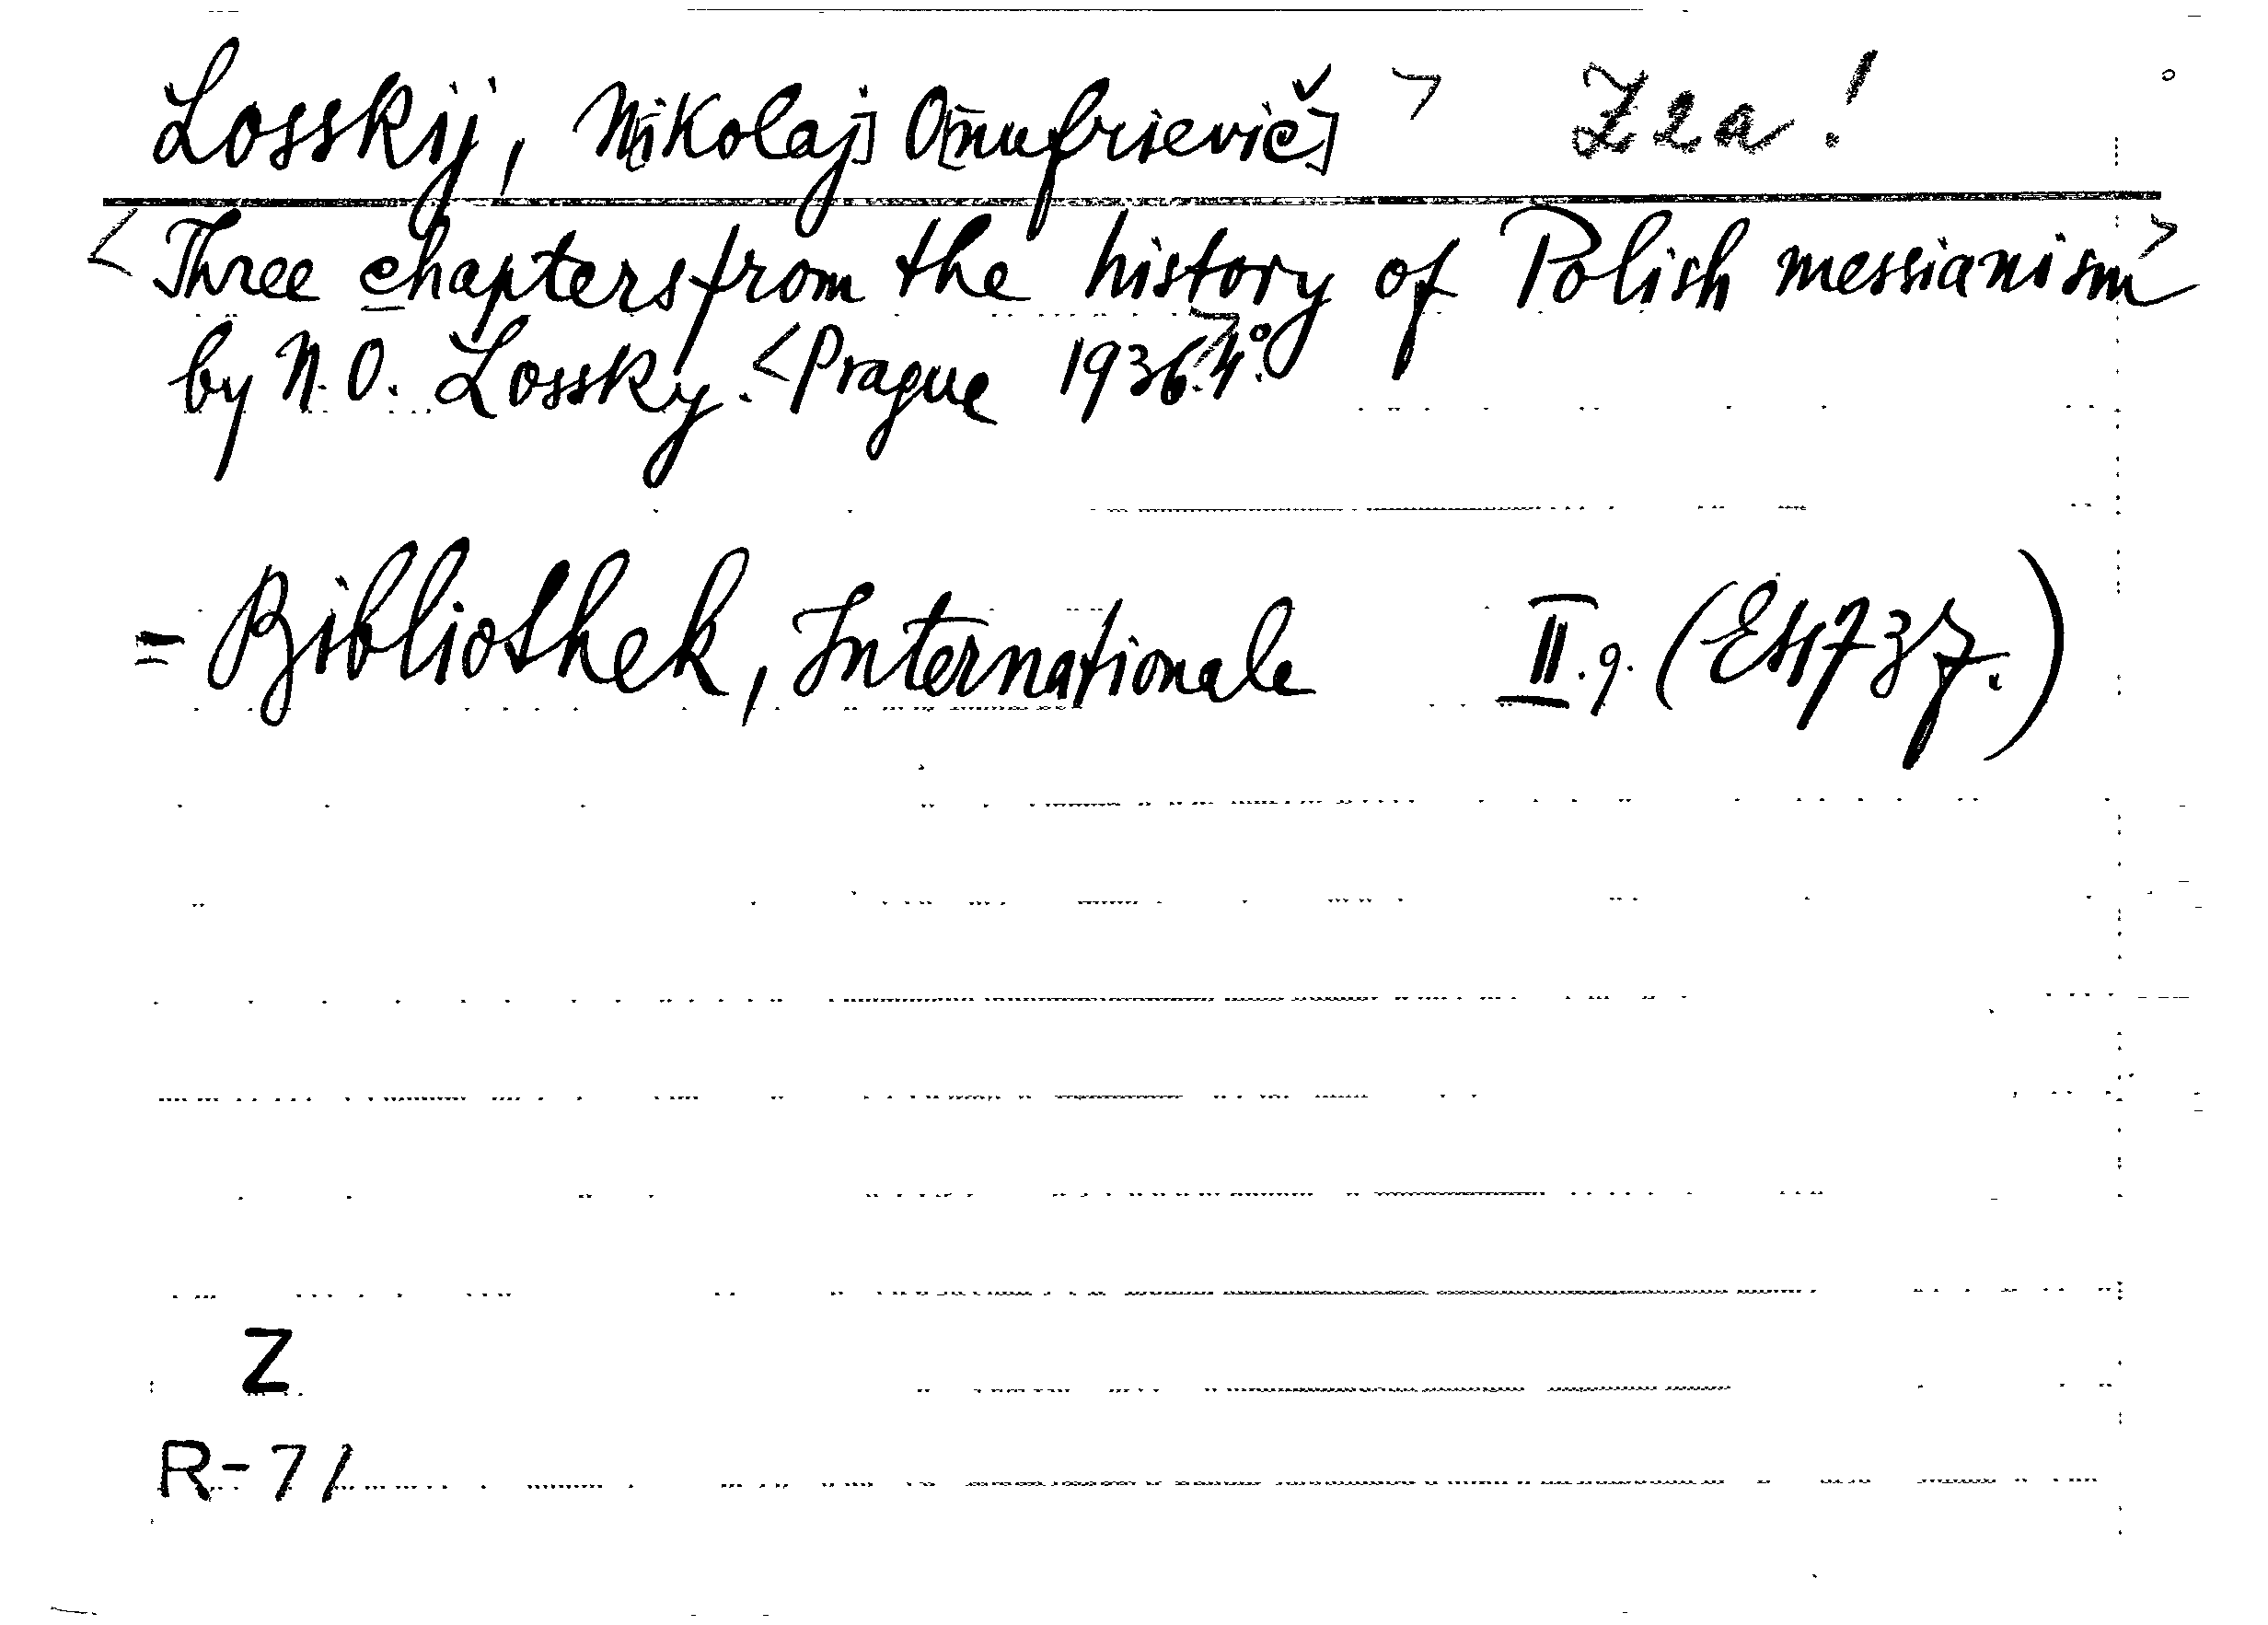 Losskij, N[ikolaj] O[nufrievič] > Z2a!
<Three chapters from the history of Polish messianism>
by N. O. Lossky. <Prague 1936.> 4°.
= Bibliothek, Internationale II.9.
Z
R-71